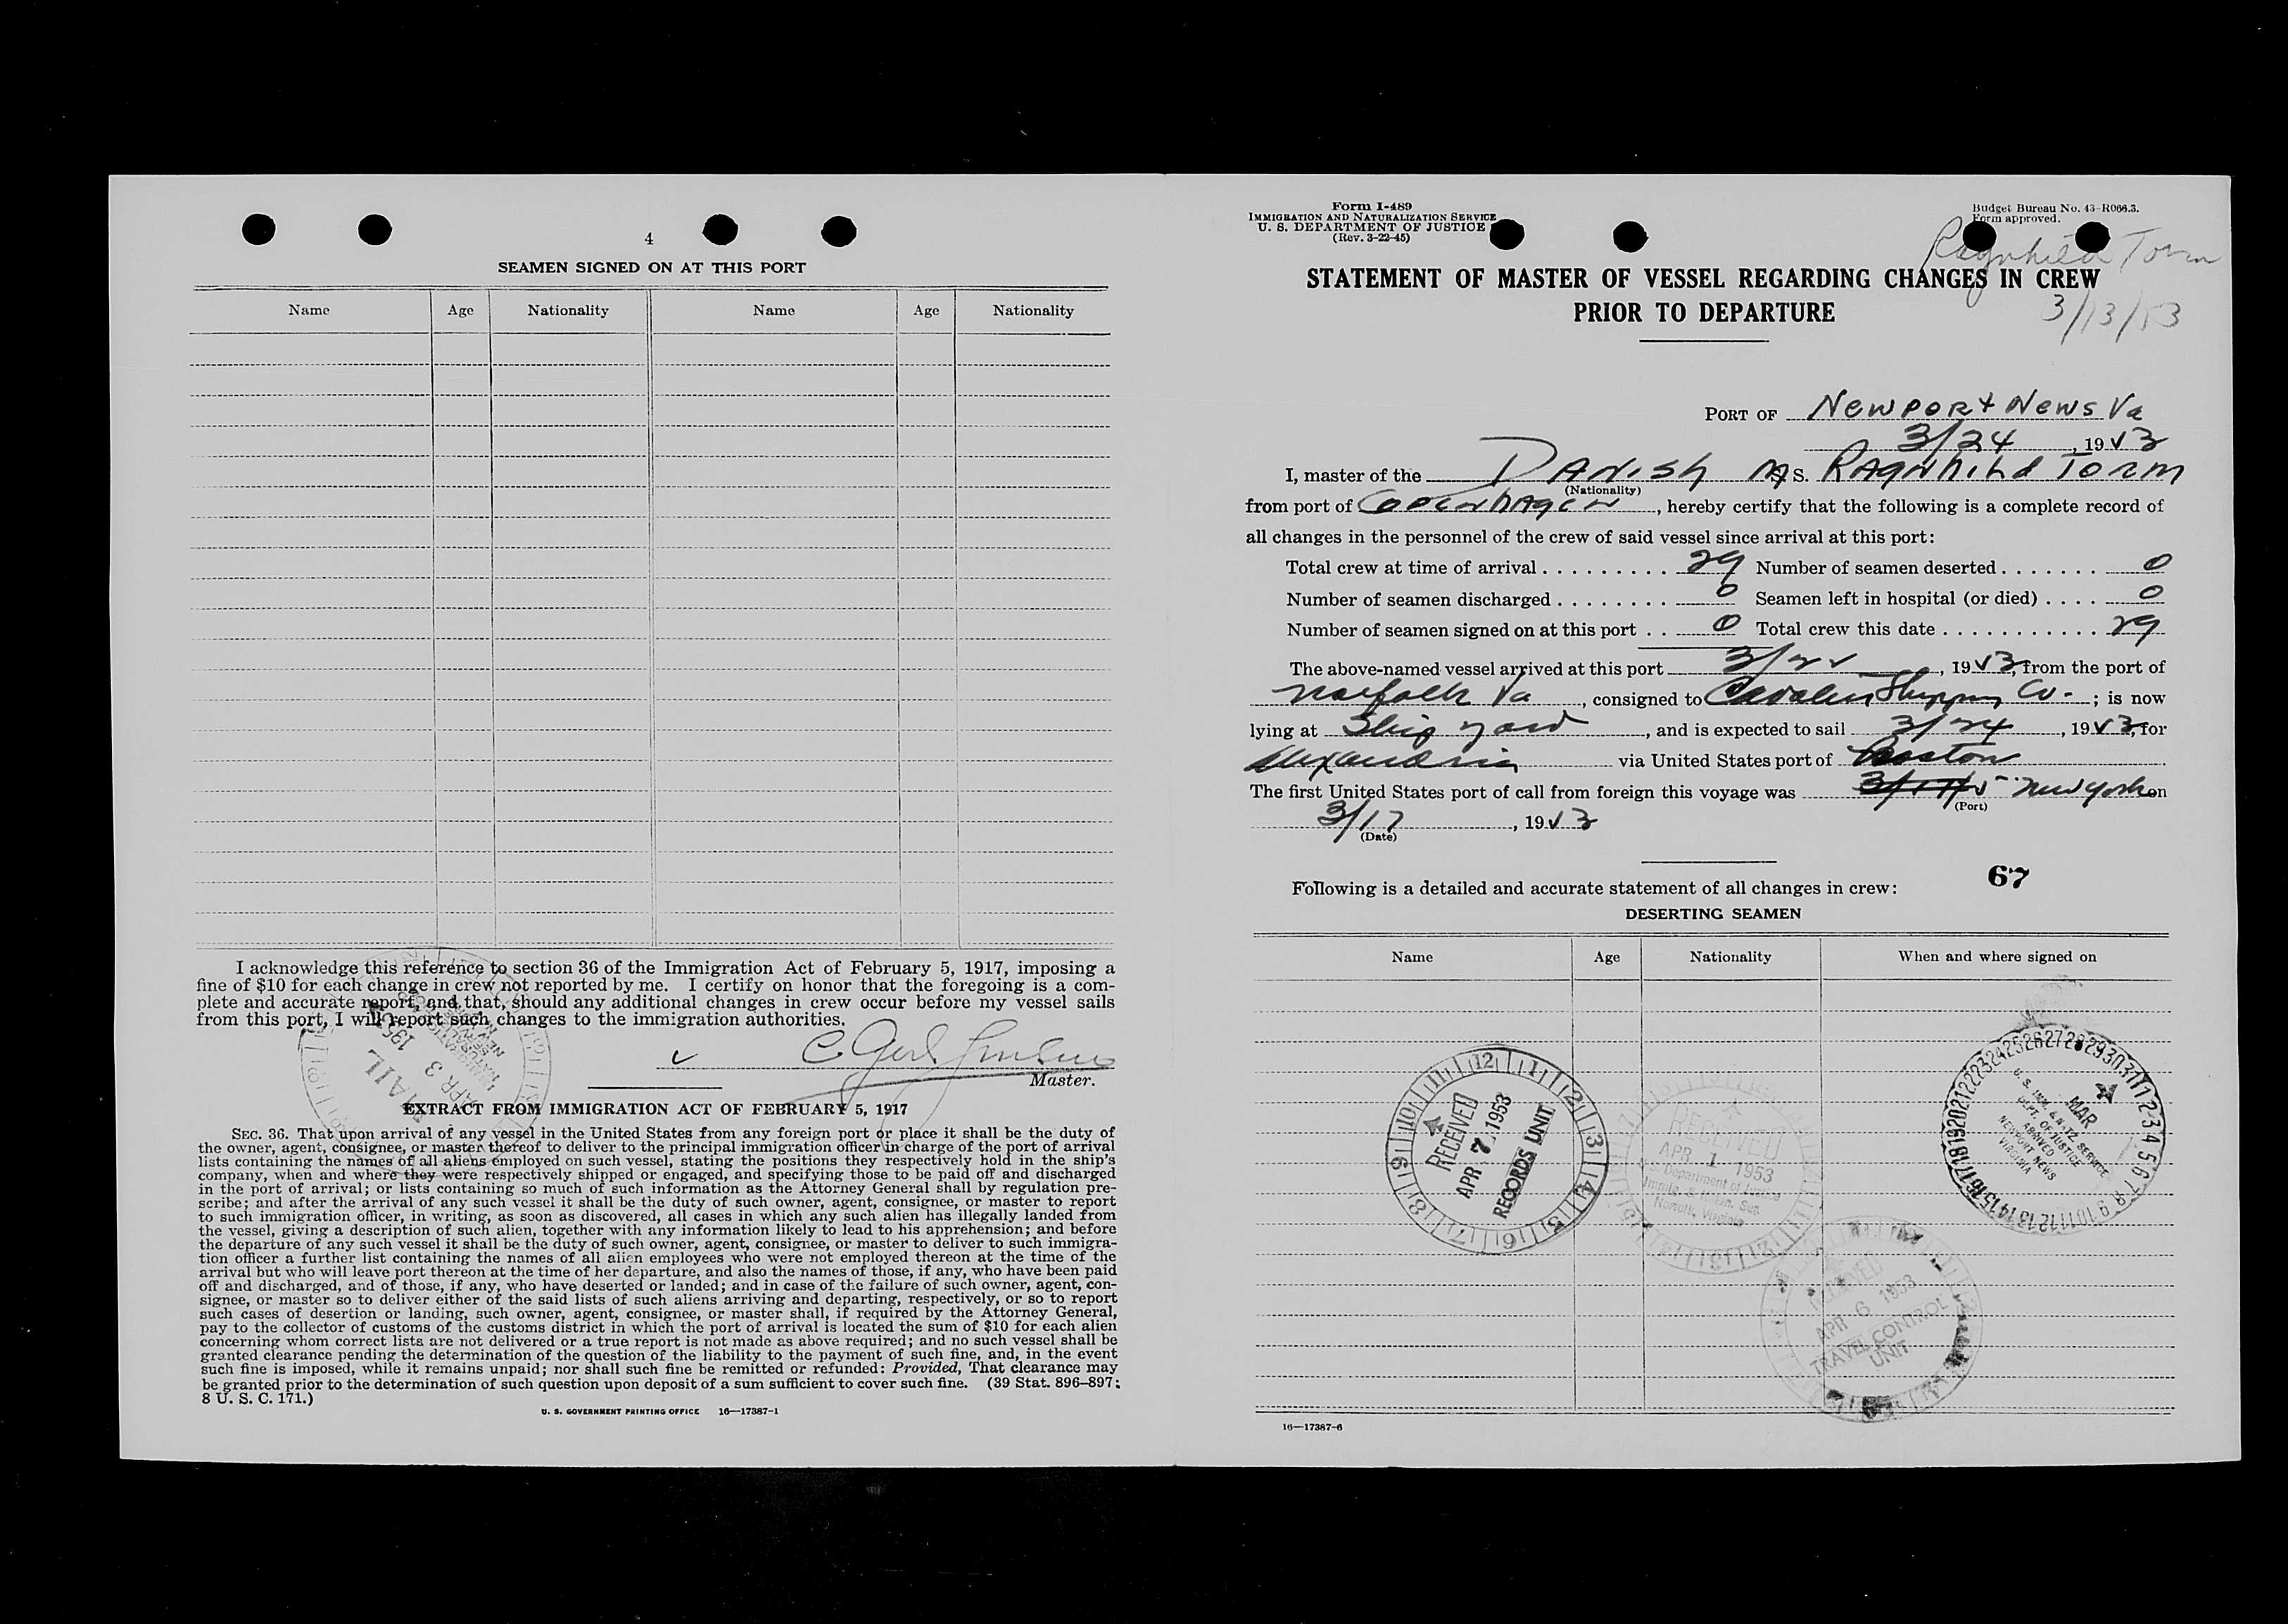 4
SEAMEN SIGNED ON AT THIS PORT
Name Age Nationality Name Age Nationality
I acknowledge this reference to section 36 of the Immigration Act of February 5, 1917, imposing a
fine of $10 for each change in crew not reported by me. I certify on honor that the foregoing is a com-
plete and accurate report, and that, should any additional changes in crew occur before my vessel sails
from this port, I will report such changes to the immigration authorities.
Master.
MAIL
APR 3
EXTRACT FROM IMMIGRATION ACT OF FEBRUARY 5, 1917
SEC. 36. That upon arrival of any vessel in the United States from any foreign port or place it shall be the duty of
the owner, agent, consignee, or master thereof to deliver to the principal immigration officer in charge of the port of arrival
lists containing the names of all aliens employed on such vessel, stating the positions they respectively hold in the ship's
company, when and where they were respectively shipped or engaged, and specifying those to be paid off and discharged
in the port of arrival; or lists containing so much of such information as the Attorney General shall by regulation pre-
scribe; and after the arrival of any such vessel it shall be the duty of such owner, agent, consignee, or master to report
to such immigration officer, in writing, as soon as discovered, all cases in which any such alien has illegally landed from
the vessel, giving a description of such alien, together with any information likely to lead to his apprehension; and before
the departure of any such vessel it shall be the duty of such owner, agent, consignee, or master to deliver to such immigra-
tion officer a further list containing the names of all alien employees who were not employed thereon at the time of the
arrival but who will leave port thereon at the time of her departure, and also the names of those, if any, who have been paid
off and discharged, and of those, if any, who have deserted or landed; and in case of the failure of such owner, agent, con-
signee, or master so to deliver either of the said lists of such aliens arriving and departing, respectively, or so to report
such cases of desertion or landing, such owner, agent, consignee, or master shall, if required by the Attorney General,
pay to the collector of customs of the customs district in which the port of arrival is located the sum of $10 for each alien
concerning whom correct lists are not delivered or a true report is not made as above required; and no such vessel shall be
granted clearance pending the determination of the question of the liability to the payment of such fine, and, in the event
such fine is imposed, while it remains unpaid; nor shall such fine be remitted or refunded: Provided, That clearance may
be granted prior to the determination of such question upon deposit of a sum sufficient to cover such fine. (39 Stat. 896–897;
8 U. S. C. 171.)
U. S. GOVERNMENT PRINTING OFFICE 16—17387-1
Form I-489
IMMIGRATION AND NATURALIZATION SERVICE
U. S. DEPARTMENT OF JUSTICE
(Rev. 3-22-45)
Budget Bureau No. 43-R066.3.
Form approved.
Ragnhild Torm
3/13/53
STATEMENT OF MASTER OF VESSEL REGARDING CHANGES IN CREW
PRIOR TO DEPARTURE
PORT OF Newport News Va
3/24, 1953
I, master of the Danish M S. Ragnhild Torm
(Nationality)
from port of Copenhagen, hereby certify that the following is a complete record of
all changes in the personnel of the crew of said vessel since arrival at this port:
Total crew at time of arrival 29 Number of seamen deserted 0
Number of seamen discharged 0 Seamen left in hospital (or died) 0
Number of seamen signed on at this port 0 Total crew this date 29
The above-named vessel arrived at this port 3/22, 1953, from the port of
Norfolk Va, consigned to Cavalier Shipping Co.; is now
lying at Ship yard, and is expected to sail 3/24, 1953, for
Alexandria via United States port of Boston
The first United States port of call from foreign this voyage was New York on
(Port)
3/17, 1953
(Date)
67
Following is a detailed and accurate statement of all changes in crew:
DESERTING SEAMEN
Name Age Nationality When and where signed on
RECEIVED
APR 7 1953
RECORDS UNIT
RECEIVED
APR 1 1953
U. S. Department of Justice
Immig. & Natzn. Ser.
Norfolk, Virginia
MAR
U. S. IMM. & NATZ. SERVICE
DEPT. OF JUSTICE
ARRIVED
NEWPORT NEWS
VIRGINIA
RECEIVED
APR 6 1953
TRAVEL CONTROL
UNIT
16—17387-6